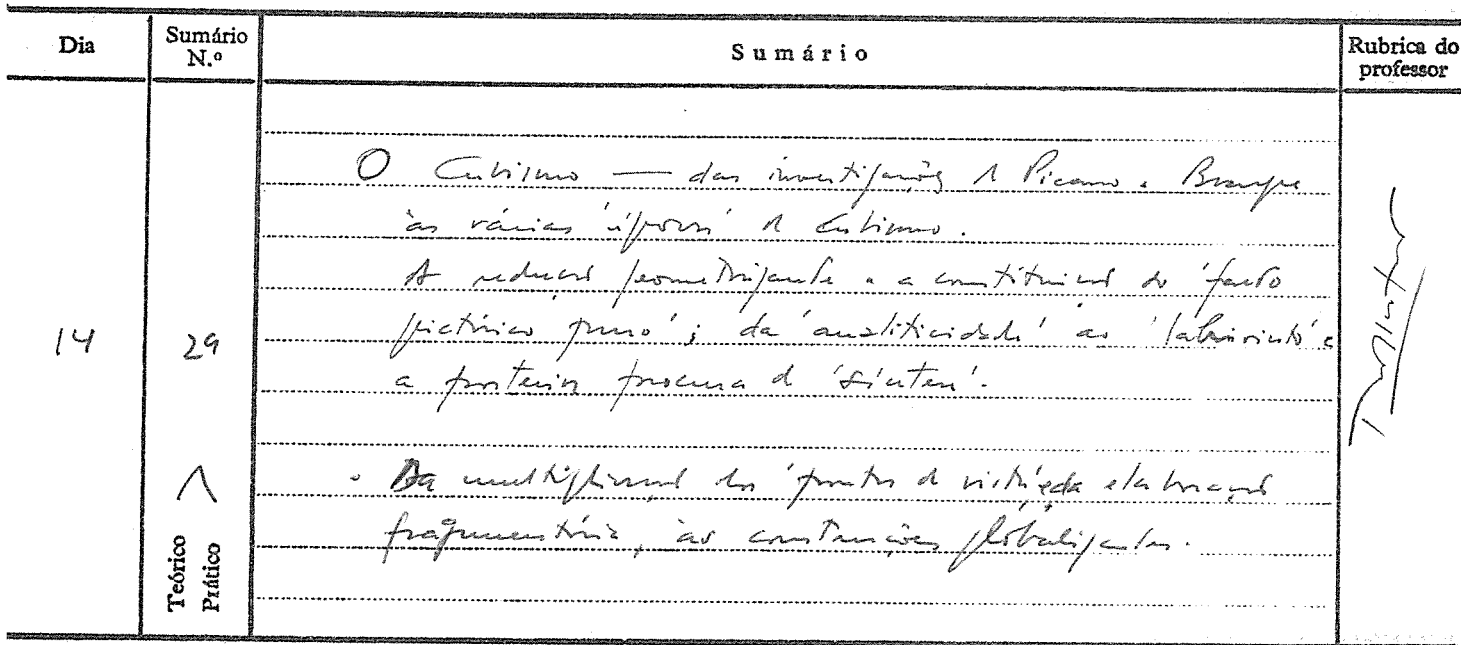 Dia
Sumário N.º
Sumário
Rubrica do professor
14
29
Teórico
Prático
O Cubismo — das investigações de Picasso e Braque
às várias 'épocas' do Cubismo.
A redução geometrizante e a constituição do 'facto
pictórico puro'; da 'analiticidade' ao 'labirinto' e
a posterior procura de 'síntese'.
. Da multiplicação dos 'pontos de vista' e da elaboração
fragmentária, às construções globalizantes.